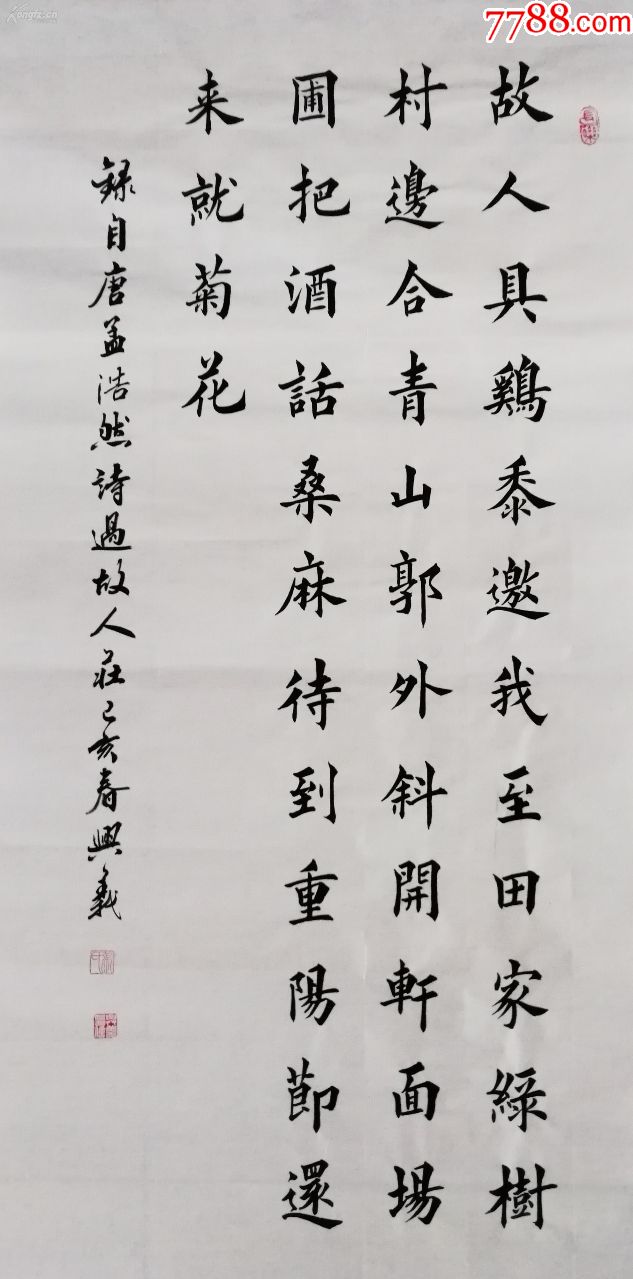 7788.com
Kongfz.cn
故人具鷄黍邀我至田家綠樹
村邊合青山郭外斜開軒面場
圃把酒話桑麻待到重陽節還
来就菊花
録自唐孟浩然詩過故人莊己亥春興義